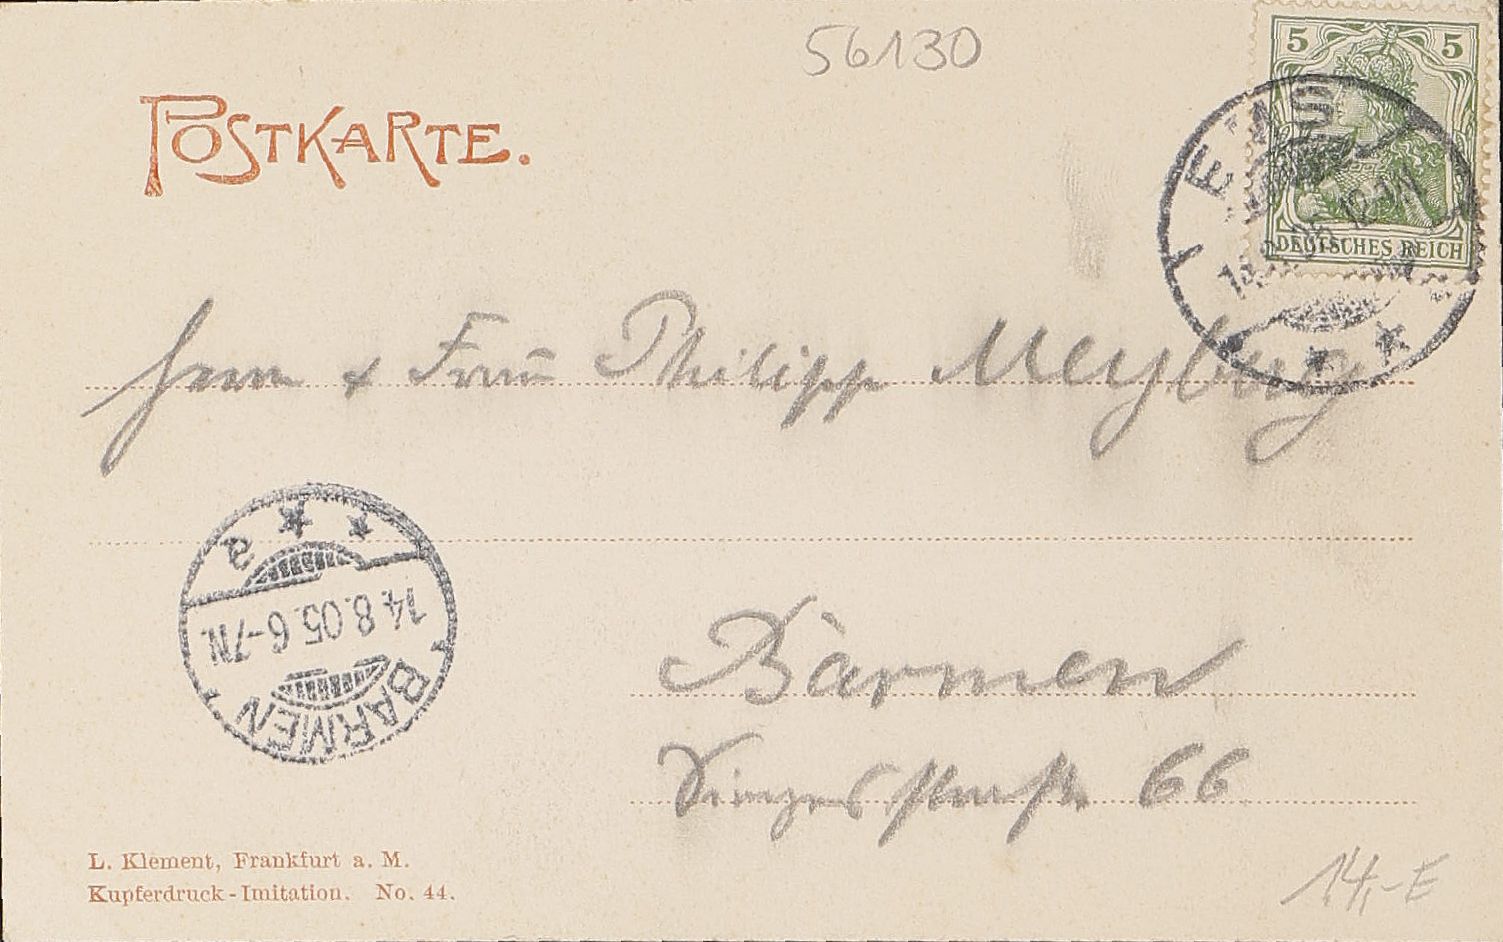 56130
5 5
POSTKARTE.
EMS
DEUTSCHES REICH
Herrn & Frau Philipp Meyburg
14.8.05.6-7N.
BARMEN
Barmen
66
L. Klement, Frankfurt a. M.
Kupferdruck-Imitation. No. 44.
14,-E